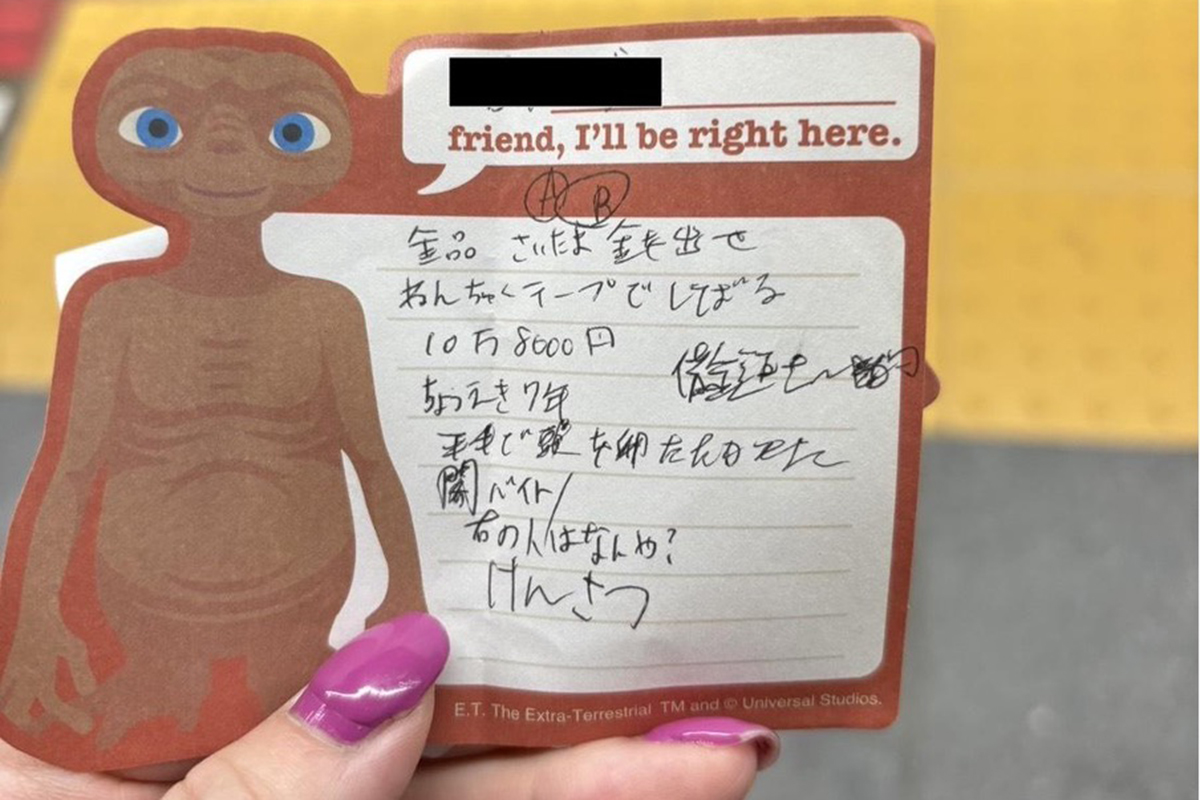 friend, I'll be right here.
A B
金品 さいたま 金を出せ
ねんちゃくテープでしばる
10万8000円
ちょうえき7年
で 頭 を
闇バイト/
右の人はなんや?
けんさつ
E.T. The Extra-Terrestrial TM and © Universal Studios.